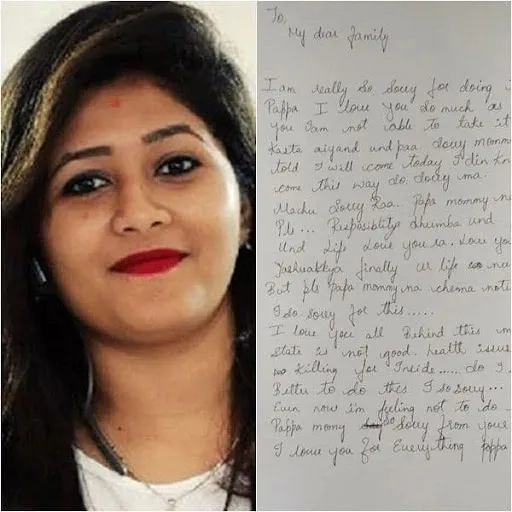 To,
My dear family
I am really so sorry for doing
Pappa I love you so much as
you Iam not able to take it
Kasta aiyand und paa. Sorry momm
told I will come today I din kn
come this way so. Sorry ma.
Machu Sorry Raa.. Papa mommy
Pls...
Und Life Love you ra. Love yo
finally life
But pls papa mommy na
I so. Sorry for this.....
I love you all Behind this
State is not good. health issue
Killing for Inside..... So I
Better to do this I so sorry...
Even now im feeling not to do
Pappa momy so Sorry from your
I love you for Everything pappa